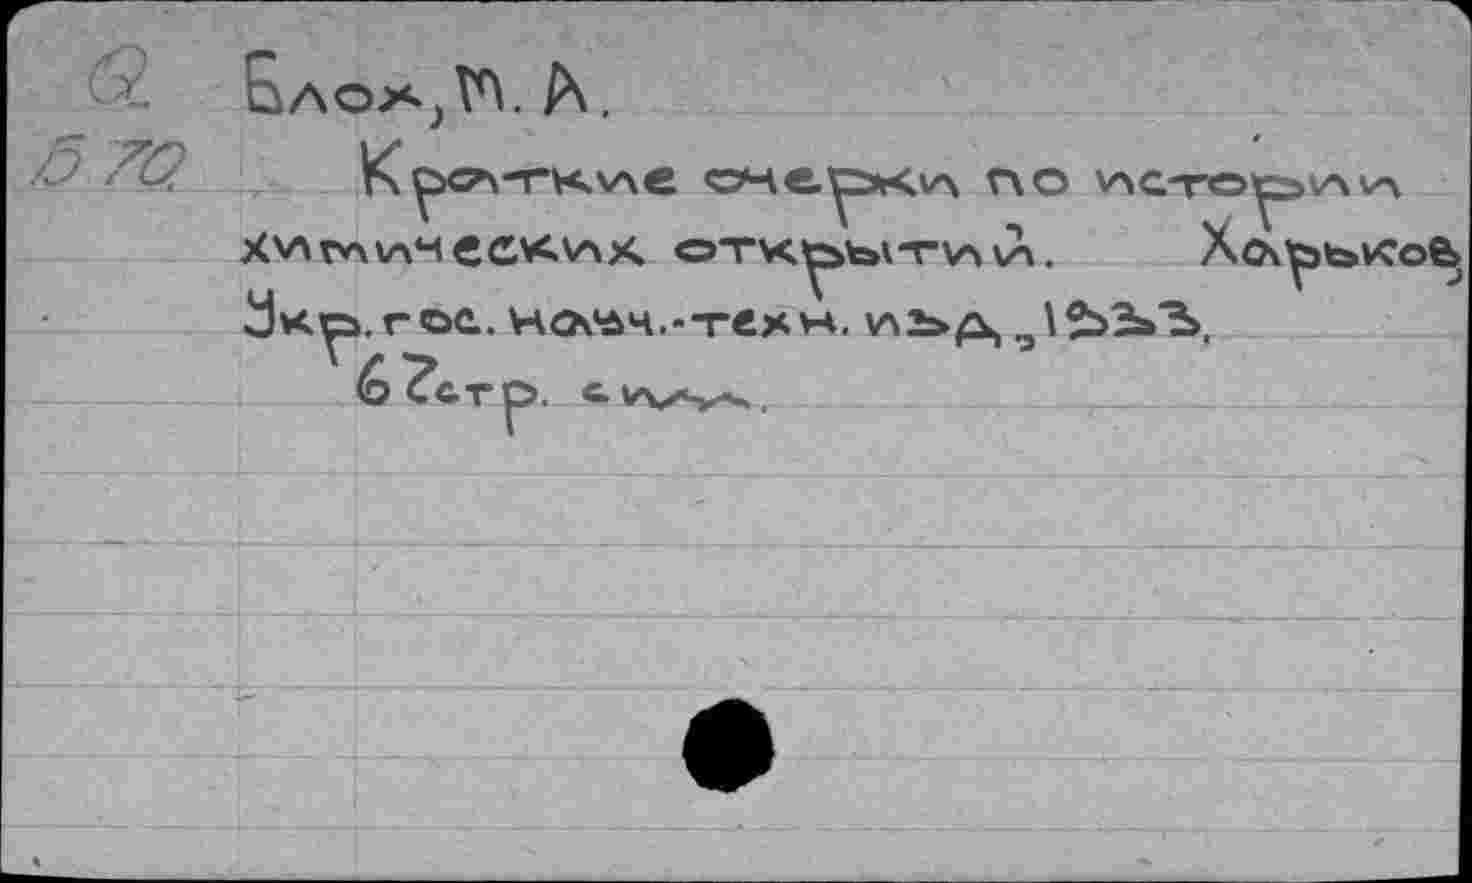 Блох, М. А.
Б 70.
Краткие очерки по истории
химических открытий. Харьков,
Укр. гос. науч.-техн. изд.,
стр. с илл.